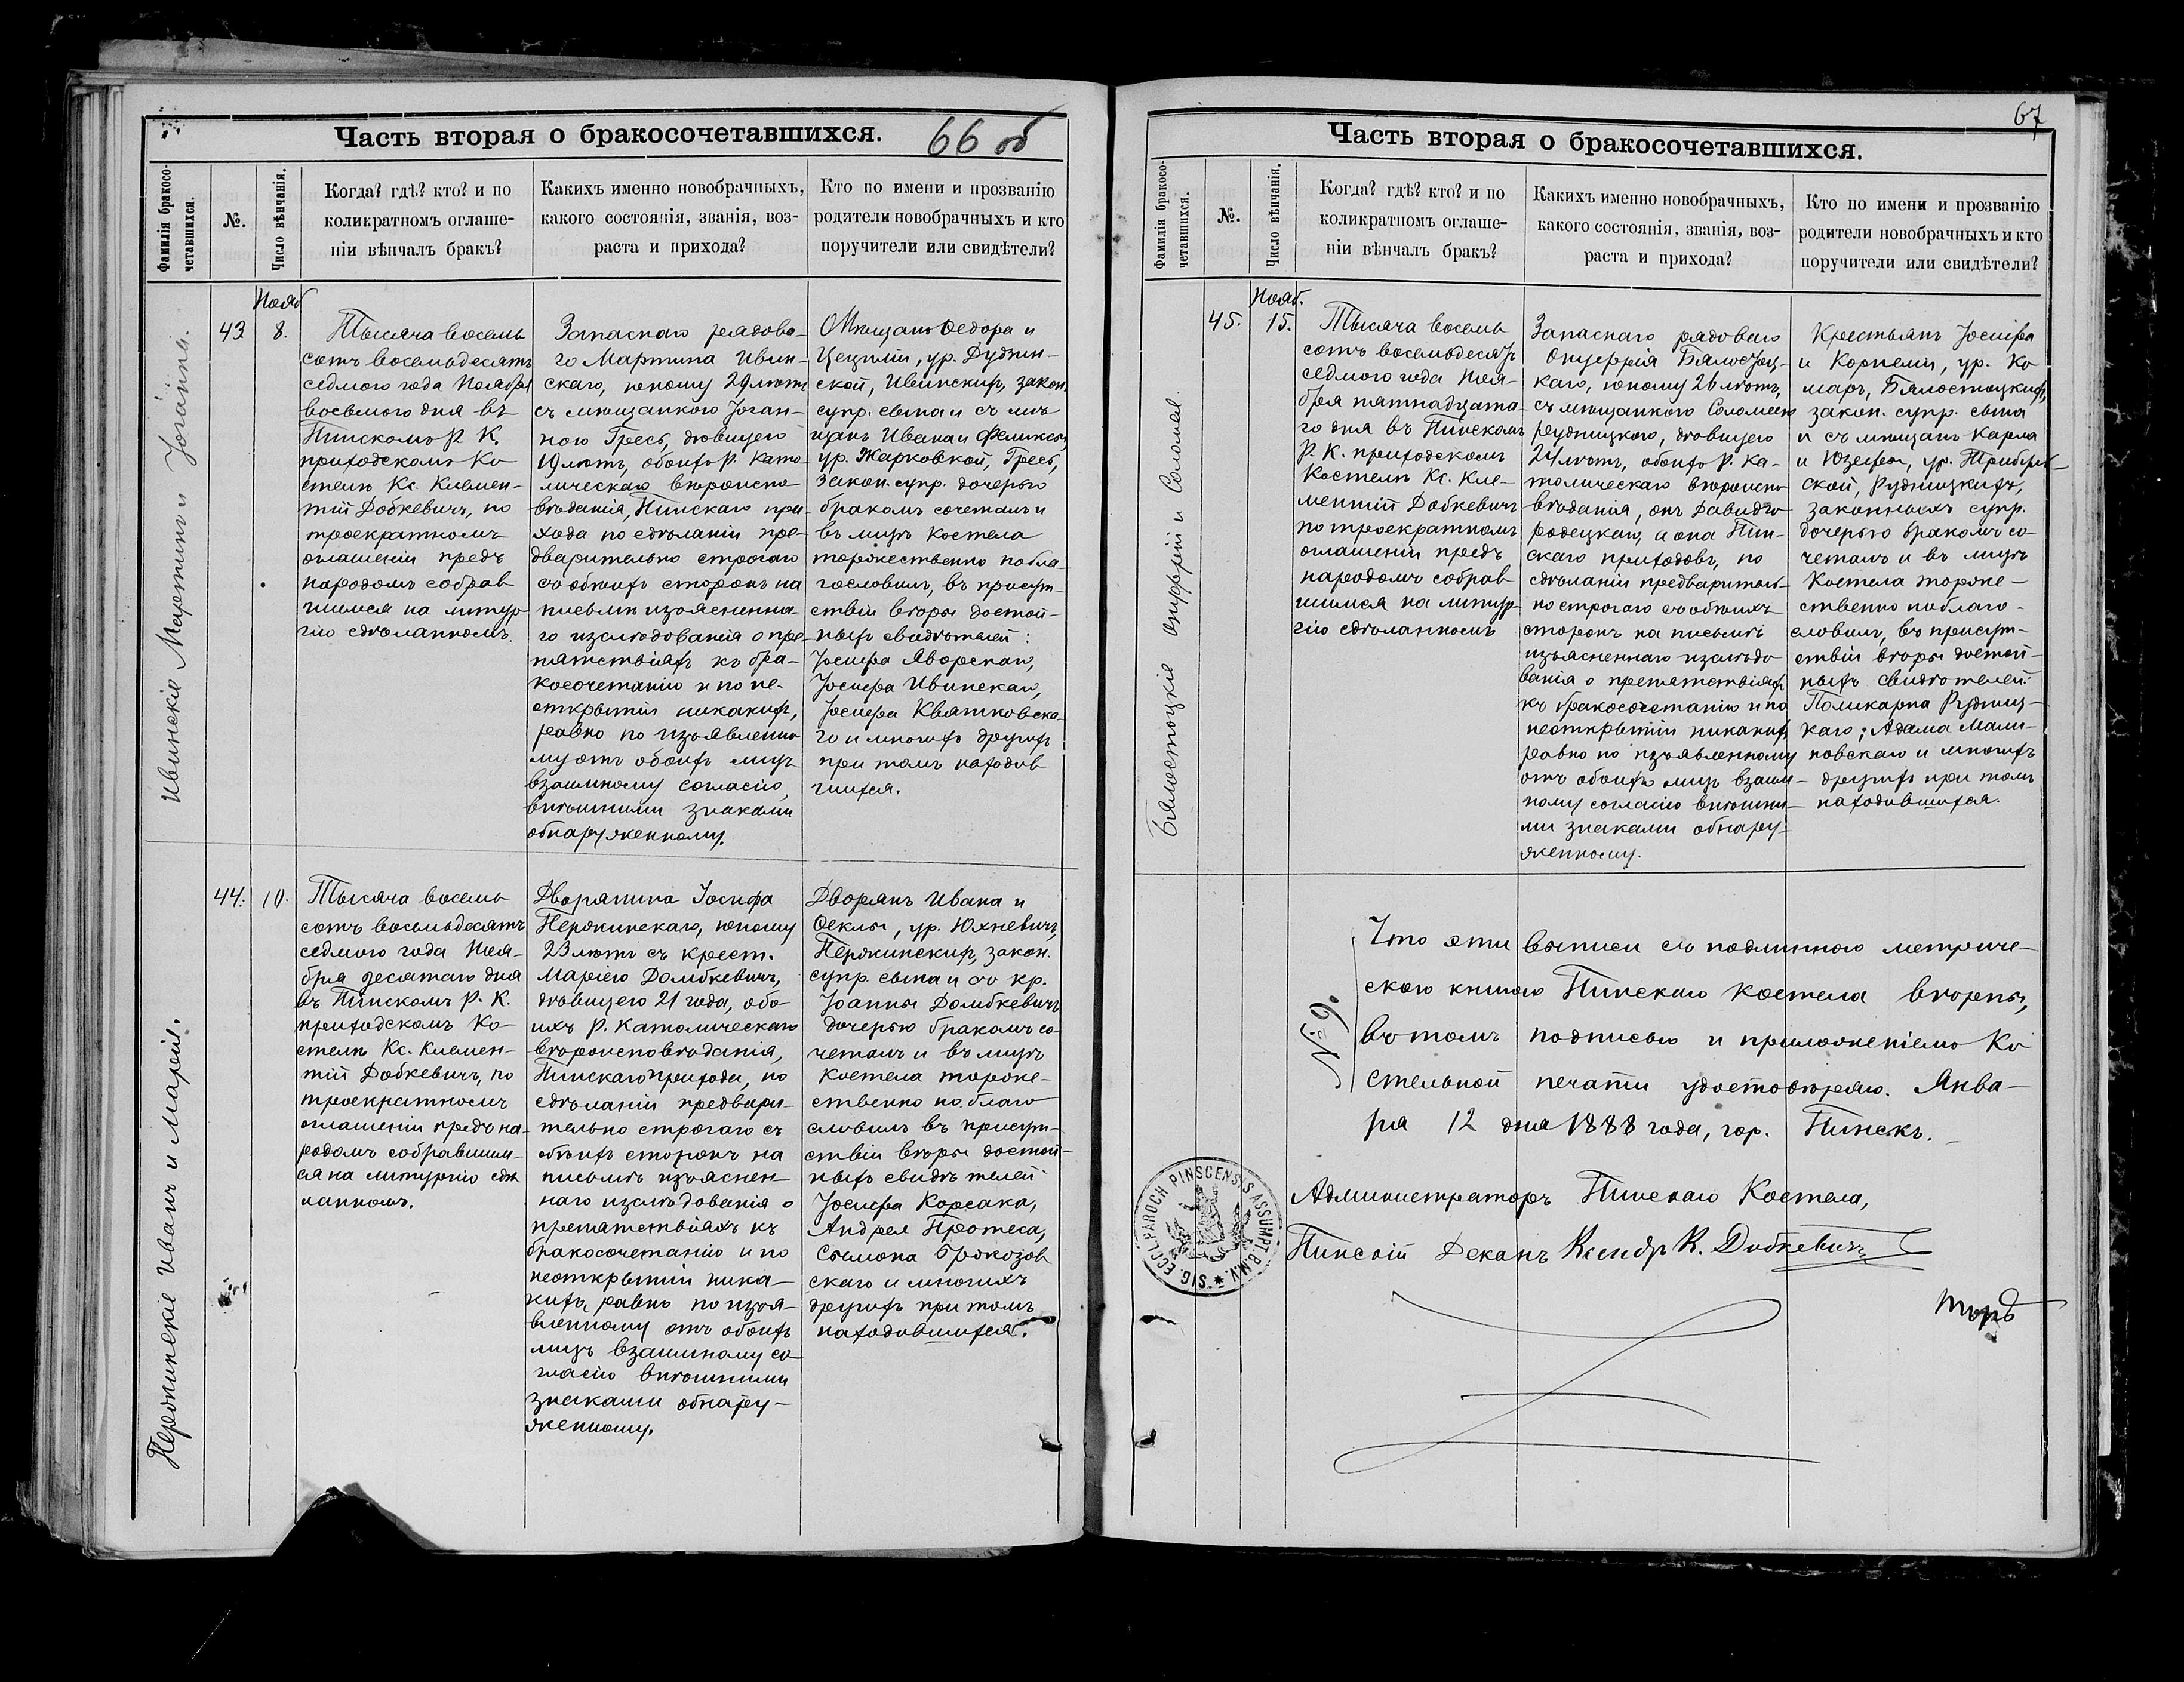 Часть вторая о бракосочетавшихся.
66 об
Фамиліи бракосо-
четавшихся.
№.
Число вѣнчанія.
Когда? гдѣ? кто? и по
коликратномъ оглаше-
ніи вѣнчалъ бракъ?
Какихъ именно новобрачныхъ,
какого состоянія, званія, воз-
раста и прихода?
Кто по имени и прозванію
родители новобрачныхъ и кто
поручители или свидѣтели?
Ивинскіе Мартинъ и Іоганна.
Нояб
43
8.
Тысяча восемь
сотъ восемьдесятъ
седмого года Ноября
восьмого дня въ
Пинскомъ Р. К.
приходскомъ Ко
стелѣ Кс. Клемен-
тій Добкевичъ, по
троекратномъ
оглашеніи предъ
народомъ собрав
шимся на литур
гію сдѣланномъ.
Запаснаго рядова-
го Мартина Ивин-
скаго, юношу 29 лѣтъ
съ мѣщанкою Іоган-
ною Гресъ, дѣвицею
19 лѣтъ, обоихъ Р. Като-
лическаго вѣроиспо-
вѣданія, Пинскаго при-
хода по сдѣланіи пре-
дварительно строгаго
со обѣихъ сторонъ на
письмѣ изъясненна-
го изслѣдованія о пре-
пятствіяхъ къ бра-
косочетанію и по не-
открытіи никакихъ,
равно по изъявленно
му отъ обоихъ лицъ
взаимному согласію,
внѣшними знаками
обнаруженному.
Мѣщанъ Федора и
Цециліи, ур. Дудзин-
ской, Ивинскихъ, закон.
супр. сына и съ мѣ
щанъ Ивана и Феликсы,
ур. Жарковской, Гресъ,
закон. супр. дочерью
бракомъ сочеталъ и
въ лицѣ костела
торжественно побла-
гословилъ, въ присут-
ствіи вѣры достой-
ныхъ свидѣтелей:
Іосифа Яворскаго,
Іосифа Ивинскаго,
Іосифа Квятковска-
го и многихъ другихъ
при томъ находив
шихся.
Пержинскіе Иванъ и Марія.
44.
10.
Тысяча восемь
сотъ восемьдесятъ
седмого года Ноя-
бря десятаго дня
въ Пинскомъ Р. К.
приходскомъ Ко-
стелѣ Кс. Клемен-
тій Добкевичъ, по
троекратномъ
оглашеніи предъ на-
родомъ собравшим-
ся на литургію сдѣ
ланномъ.
Дворянина Іосифа
Пержинскаго, юношу
23 лѣтъ съ крест.
Маріею Домбкевичъ,
дѣвицею 21 года, обо-
ихъ Р. Католическаго
вѣроисповѣданія,
Пинскаго прихода, по
сдѣланіи предвари-
тельно строгаго съ
обѣихъ сторонъ на
письмѣ изъяснен-
наго изслѣдованія о
препятствіяхъ къ
бракосочетанію и по
неоткрытіи ника-
кихъ, равно по изъя-
вленному отъ обоихъ
лицъ взаимному со-
гласію внѣшними
знаками обнару-
женному.
Дворянъ Ивана и
Феклы, ур. Юхневичъ,
Пержинскихъ, закон.
супр. сына и со кр.
Іоанны Домбкевичъ
дочерью бракомъ со-
четалъ и въ лицѣ
костела торже-
ственно по благо
словилъ въ присут-
ствіи вѣры достой-
ныхъ свидѣтелей
Іосифа Корсака,
Андрея Протеса,
скаго и многихъ
другихъ при томъ
находившихся.
67
Часть вторая о бракосочетавшихся.
Фамиліи бракосо-
четавшихся.
№.
Число вѣнчанія.
Когда? гдѣ? кто? и по
коликратномъ оглаше-
ніи вѣнчалъ бракъ?
Какихъ именно новобрачныхъ,
какого состоянія, званія, воз-
раста и прихода?
Кто по имени и прозванію
родители новобрачныхъ и кто
поручители или свидѣтели?
Бялостоцкіе Онуфрій и Соломея.
Нояб.
45.
15.
Тысяча восемь
сотъ восемьдесятъ
седмого года Ноя-
бря пятнадцата-
го дня въ Пинскомъ
Р. К. приходскомъ
Костелѣ Кс. Кле-
ментій Добкевичъ
по троекратномъ
оглашеніи предъ
народомъ собрав
шимся на литур-
гію сдѣланномъ
Запаснаго рядоваго
Онуфрія Бялостоц-
каго, юношу 26 лѣтъ,
съ мѣщанкою Соломеею
Рудницкою, дѣвицею
24 лѣтъ, обоихъ Р. Ка-
толическаго вѣроиспо
вѣданія, онъ Давидго
родецкаго, а она Пин-
скаго приходовъ, по
сдѣланіи предваритель-
но строгаго со обѣихъ
сторонъ на письмѣ
изъясненнаго изслѣдо
ванія о препятствіяхъ
къ бракосочетанію и по
неоткрытіи никакихъ
равно по изъявленному
отъ обоихъ лицъ взаим-
ному согласію внѣшни-
ми знаками обнару-
женному.
Крестьянъ Іосифа
и Корнеліи, ур. Ко
маръ, Бялостоцкихъ,
закон. супр. сына
и съ мѣщанъ Карла
и Юзефы, ур.
ской, Рудницкихъ,
законныхъ супр.
дочерью бракомъ со-
четалъ и въ лицѣ
Костела торже-
ственно поблаго-
словилъ, въ присут-
ствіи вѣры достой-
ныхъ свидѣтелей:
Поликарпа Рудниц-
каго, Адама Мали-
новскаго и многихъ
другихъ при томъ
находившихся.
№ 9.
Что эти выписи съ подлинною метриче-
скою книгою Пинскаго костела вѣрны,
въ томъ подписью и приложеніемъ Ко
стельной печати удостовѣряю. Янва-
ря 12 дня 1888 года, гор. Пинскъ.
Администраторъ Пинскаго Костела,
Пинскій Деканъ Ксендзъ К. Добкевичъ
SIG. ECCL. PAROCH PINSCENSIS ASSUMPT. B.M.V.